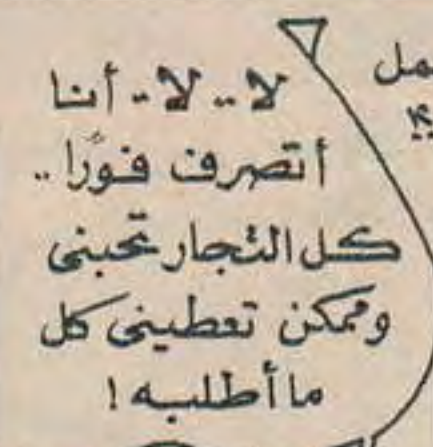 لا .. لا .. أنا
أتصرف فورًا ..
كل التجار تحبنى
وممكن تعطينى كل
ما أطلبه !